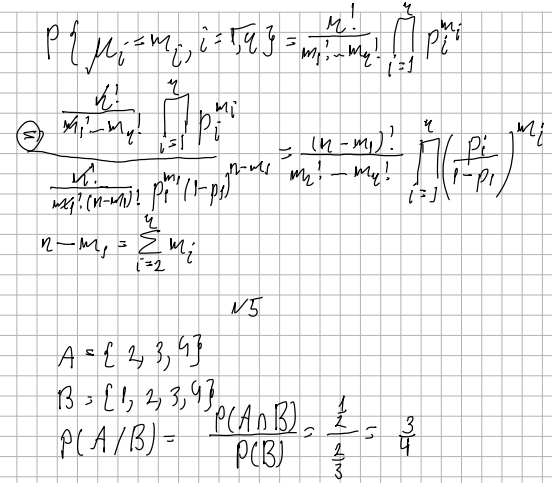 P{μ_i = m_i, i = 1,4} = n! / (m_1! – m_4!) ∏_{i=1}^{4} p_i^{m_i}
⊜ (n! / (m_1! – m_4!) ∏_{i=1}^{4} p_i^{m_i}) / (n! / (m_1! · (n-m_1)!) p_1^{m_1} (1-p_1)^{n-m_1}) = (n-m_1)! / (m_2! – m_4!) ∏_{i=1}^{4} (p_i / (1-p_1))^{m_i}
n – m_1 = ∑_{i=2}^{4} m_i
N5
A = {2, 3, 4}
B = {1, 2, 3, 4}
P(A/B) = P(A∩B) / P(B) = (1/2) / (2/3) = 3/4